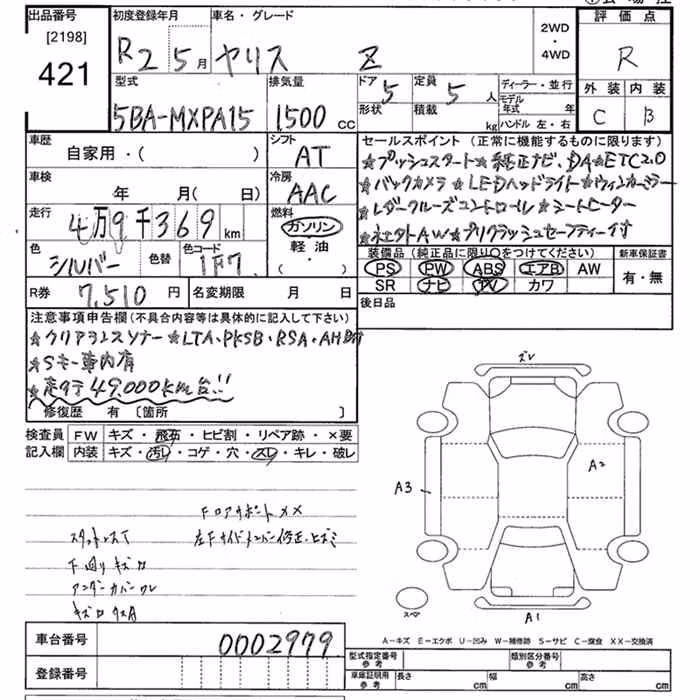 出品番号 初度登録年月 車名・グレード 2WD・4WD 評価点
[2198]
421
R2 5月 ヤリス Z R
型式 排気量 ドア 定員 ディーラー・並行 外装 内装
5BA-MXPA15 1,500cc 5 5人 モデル年式 年 C B
形状 積載 kg ハンドル 左・右
車歴 シフト セールスポイント(正常に機能するものに限ります)
自家用・( ) AT ★プッシュスタート★純正ナビ、DA★ETC2.0
車検 冷房 ★バックカメラ★LEDヘッドライト★ウィンカーミラー
年 月(日) AAC ★レダークルーズコントロール★シートヒーター
走行 燃料 ★ネエタトAW★プリクラッシュセーフティー付
4万9千369km ガソリン
軽油
・( )
色 色替 色コード 装備品(純正品に限り○をつけてください) 新車保証書
シルバー 1F7 PS PW ABS エアB AW 有・無
R券 7,510円 名変期限 月 日 SR ナビ TV カワ
後日品
注意事項申告欄(不具合内容等は具体的に記入して下さい)
★クリアランスソナー★LTA、PKSB、RSA、AHB付
★Sキー車内有
★走行49,000km台!!
修復歴 有〔箇所 〕
検査員 FW キズ・飛石・ヒビ割・リペア跡・×要
記入欄 内装 キズ・汚レ・コゲ・穴・スレ・キレ・破レ
ズレ
A2
A3
FロアサポートメX
スタットレスT 左Fサイドメンバー修正、ヒズミ
下回りキズ凹
アンダーカバーワレ
キズ凹
スペア
A1
A-キズ E-エクボ U-凹み W-補修跡 S-サビ C-腐食 XX-交換済
車台番号 0002979
型式指定番号 参考 類別区分番号 参考
登録番号 車庫証明用 参考 長さ cm 幅 cm 高さ cm